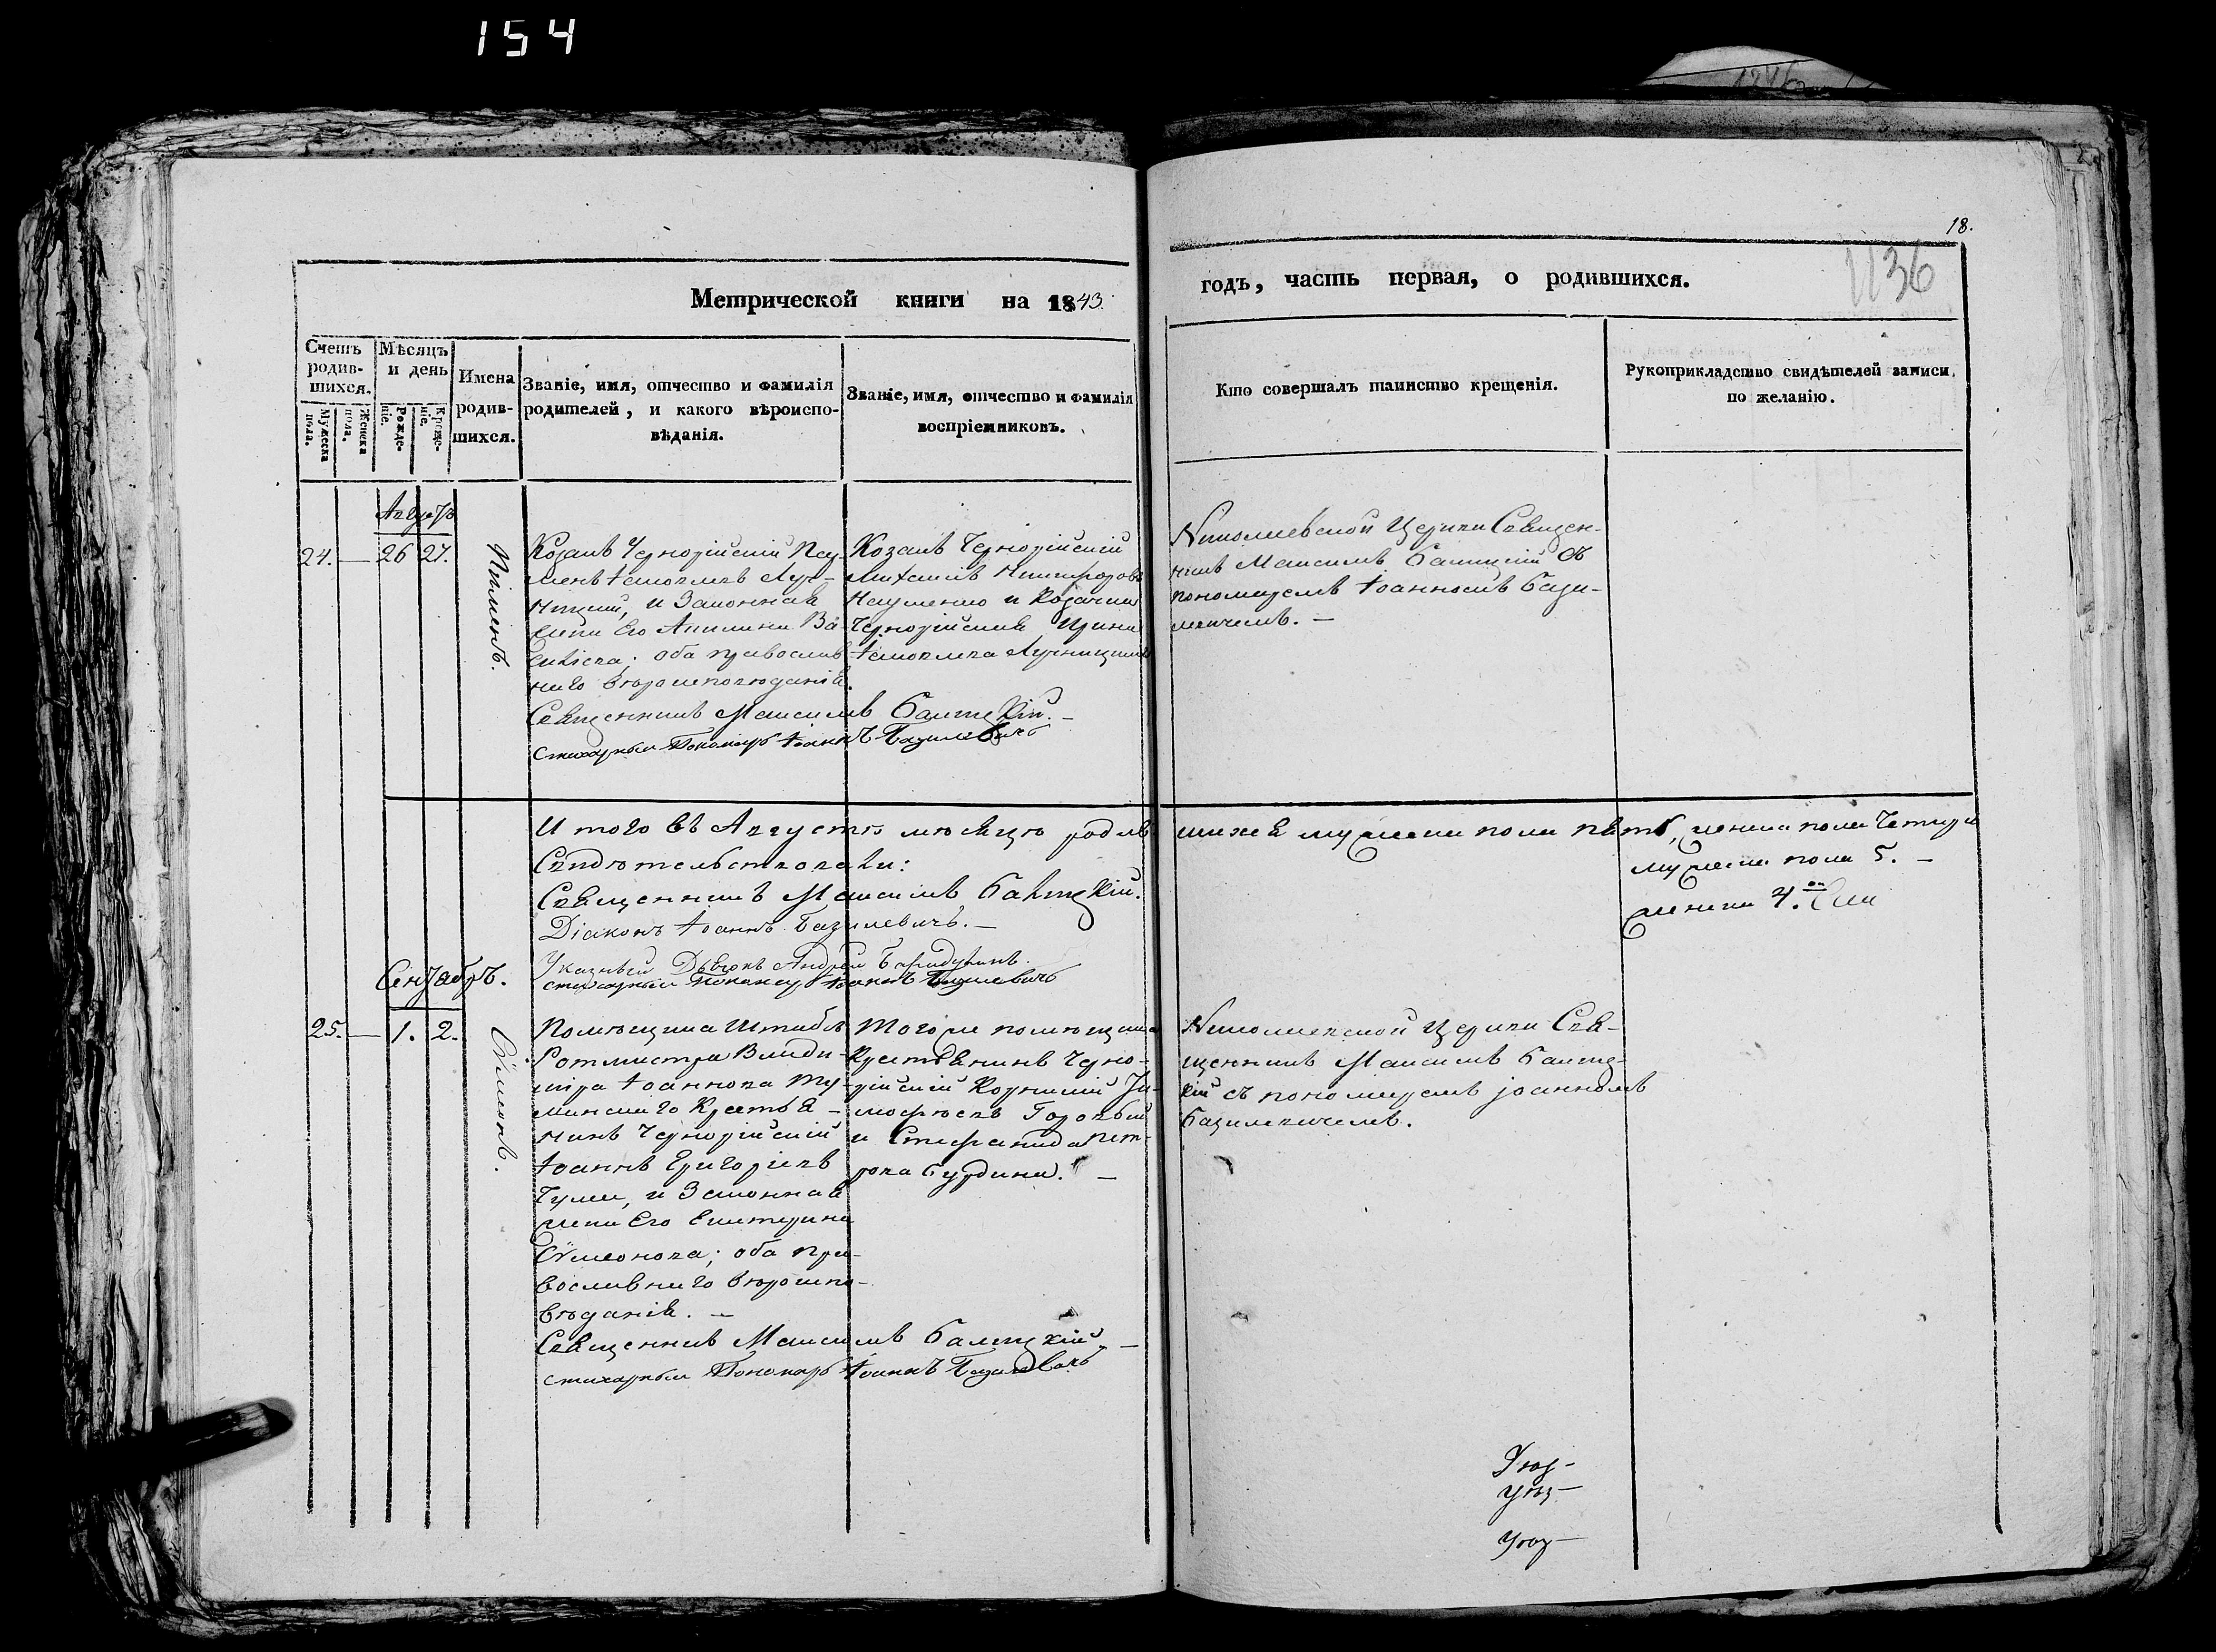 154
18.
1136
Метрической книги на 1843.
годъ, часть первая, о родившихся.
Счетъ родившихся.
Мужеска пола.
Женска пола.
Мѣсяцъ и день
Рожденіе.
Крещеніе.
Имена родившихся.
Званіе, имя, отчество и фамилія
родителей, и какого вѣроиспо-
вѣданія.
Званіе, имя, отчество и фамилія
воспріемниковъ.
Кто совершалъ таинство крещенія.
Рукоприкладство свидѣтелей записи
по желанію.
Августъ
24. — 26 27.
Пименъ.
Козакъ Чернорійскій
Іаковлевъ Луч-
ницкій, и Законная
жена Его Акилина Ва
силіева; оба православ
наго вѣроисповѣданія.
Священникъ Максимъ Балицкій. —
Стихарный Пономарь Іоаннъ Базилевичъ
Козакъ Чернорійскій
Михаилъ Никифоровъ
Науменко и Козачка
Чернорійская Ирина
Іаковлева Лучницкая
Николаевской Церкви Священ-
никъ Максимъ Балицкій съ
пономаремъ Іоанномъ Бази-
левичемъ. —
И того въ Августѣ мѣсяцѣ родив шихся мужеска пола пять, женска пола Четыре
мужеска пола 5. —
женска 4.
Свидѣтельствовали:
Священникъ Максимъ Балицкій.
Діаконъ Іоаннъ Базилевичъ. —
Указный Дьячокъ Андрей
Стихарный Пономарь Іоаннъ Базилевичъ
Сентябрь.
25. — 1. 2.
Сѵмеонъ.
Помѣщика Штабсъ
Ротмистра Влади-
міра Іоаннова Ту-
манскаго Крестья-
нинъ Чернорійскій
Іоаннъ Григоріевъ
Чума, и Законная
жена Его Екатерина
Сѵмеонова; оба пра-
вославнаго вѣроиспо-
вѣданія. —
Священникъ Максимъ Балицкій —
Стихарный Пономарь Іоаннъ Базилевичъ
Тогоже помѣщика
Крестьянинъ Черно-
рійскій Корнилій Ти-
мофѣевъ Горовый
и Стефанида Пет-
рова Бурдина. —
Николаевской Церкви Свя-
щенникъ Максимъ Балиц-
кій съ пономаремъ Іоанномъ
Базилевичемъ.
Уѣз-
Уѣз-
Уѣз-